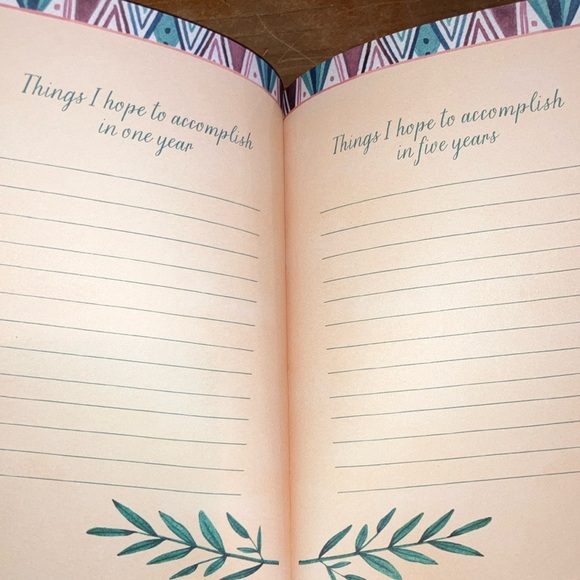 Things I hope to accomplish
in one year
Things I hope to accomplish
in five years